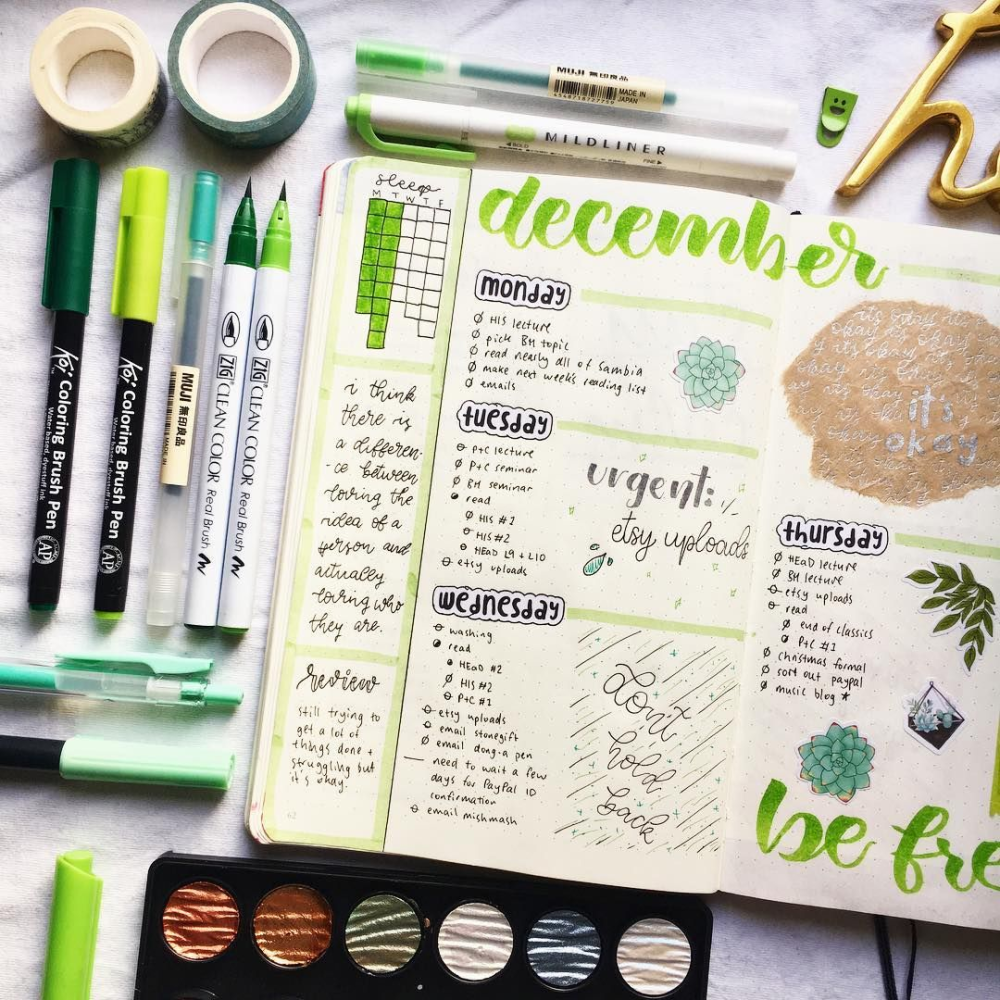 MUJI 無印良品
MADE IN JAPAN
MILDLINER
BOLD
FINE
Koi Coloring Brush Pen
Water based, dyestuff ink
AP
Koi Coloring Brush Pen
Water based, dyestuff ink
AP
MUJI 無印良品
ZIG CLEAN COLOR Real Brush
ZIG CLEAN COLOR Real Brush
sleep
M T W T F
i think
there is
a differen-
-ce between
loving the
idea of a
person and
actually
loving who
they are.
review
still trying to
get a lot of
things done +
struggling but
it's okay.
62
december
monday
HIS lecture
pick BH topic
read nearly all of sambia
make next week's reading list
emails
tuesday
P+C lecture
P+C seminar
BH seminar
read
HIS #2
HIS #2
HEAD L9 + L10
etsy uploads
urgent:
etsy uploads
wednesday
washing
read
HEAD #2
HIS #2
P+C #1
etsy uploads
email stonegift
email dong-a pen
need to wait a few
days for PayPal ID
confirmation
email mishmash
don't
hold
back
it's
okay
thursday
HEAD lecture
BH lecture
etsy uploads
read
end of classics
P+C #1
christmas formal
sort out paypal
music blog *
be fre
h